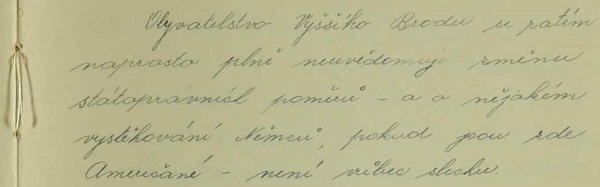 Obyvatelstvo Vyššího Brodu si zatím
naprosto plně neuvědomuje změnu
státoprávních poměrů - a o nějakém
vystěhování Němců, pokud jsou zde
Američané - není vůbec slechu.